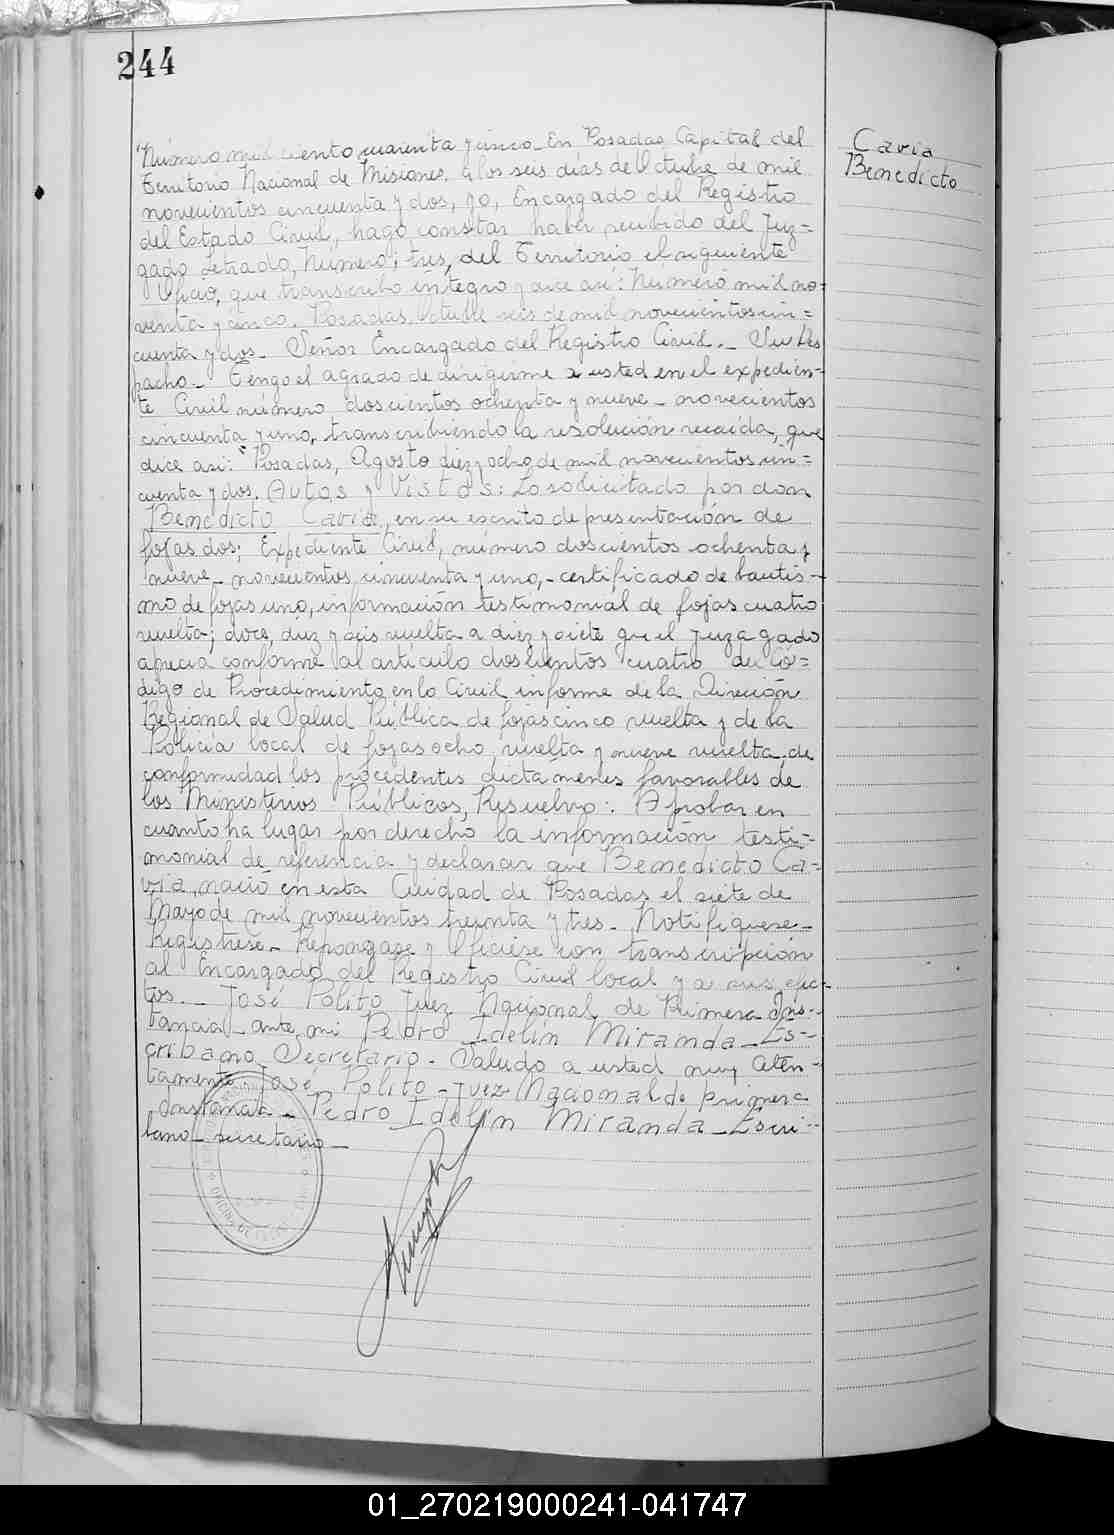 244
Cavia
Benedicto
"Número mil ciento cuarenta y cinco_ En Posadas, Capital del
Territorio Nacional de Misiones, a los seis días de Octubre de mil
novecientos cincuenta y dos, yo, Encargado del Registro
del Estado Civil, hago constar haber recibido del Juz=
gado Letrado, Número, tres, del Territorio el siguiente
Oficio, que transcribo íntegro y dice así: Número mil no=
venta y cinco. Posadas, octubre seis de mil novecientos cin=
cuenta y dos_ Señor Encargado del Registro Civil._ Su Des
pacho_ Tengo el agrado de dirigirme a usted en el expedien-
te Civil número doscientos ochenta y nueve_ novecientos
cincuenta y uno, transcribiendo la resolución recaída, que
dice así: "Posadas, Agosto diez y ocho de mil novecientos cin=
cuenta y dos. Autos y Vistos: Lo solicitado por don
Benedicto Cavia, en su escrito de presentación de
fojas dos; Expediente Civil, número doscientos ochenta y
nueve_ novecientos cincuenta y uno,- certificado de bautis-
mo de fojas uno, información testimonial de fojas cuatro
vuelta; doce, diez y seis vuelta a diez y siete que el juzgado
aprecia conforme al artículo doscientos cuatro del Có=
digo de Procedimiento en lo Civil informe de la Dirección
Regional de Salud Pública de fojas cinco vuelta y de la
Policía local de fojas ocho vuelta y nueve vuelta, de
conformidad los procedentes dictámenes favorables de
los Ministerios Públicos, Resuelvo: Aprobar en
cuanto ha lugar por derecho la información testi=
monial de referencia y declarar que Benedicto Ca=
via, nació en esta Ciudad de Posadas el siete de
Mayo de mil novecientos treinta y tres_ Notifíquese_
Regístrese_ Repóngase y Ofíciese con transcripción
al Encargado del Registro Civil local y a sus efec-
tos._ José Polito Juez Nacional de Primera Ins-
tancia_ ante mí Pedro Idelin Miranda_ Es-
cribano Secretario- Saludo a usted muy aten-
tamente José Polito_ Juez Nacional de primera
Instancia_ Pedro Idelin Miranda_ Escri-
bano_ secretario_
01_270219000241-041747